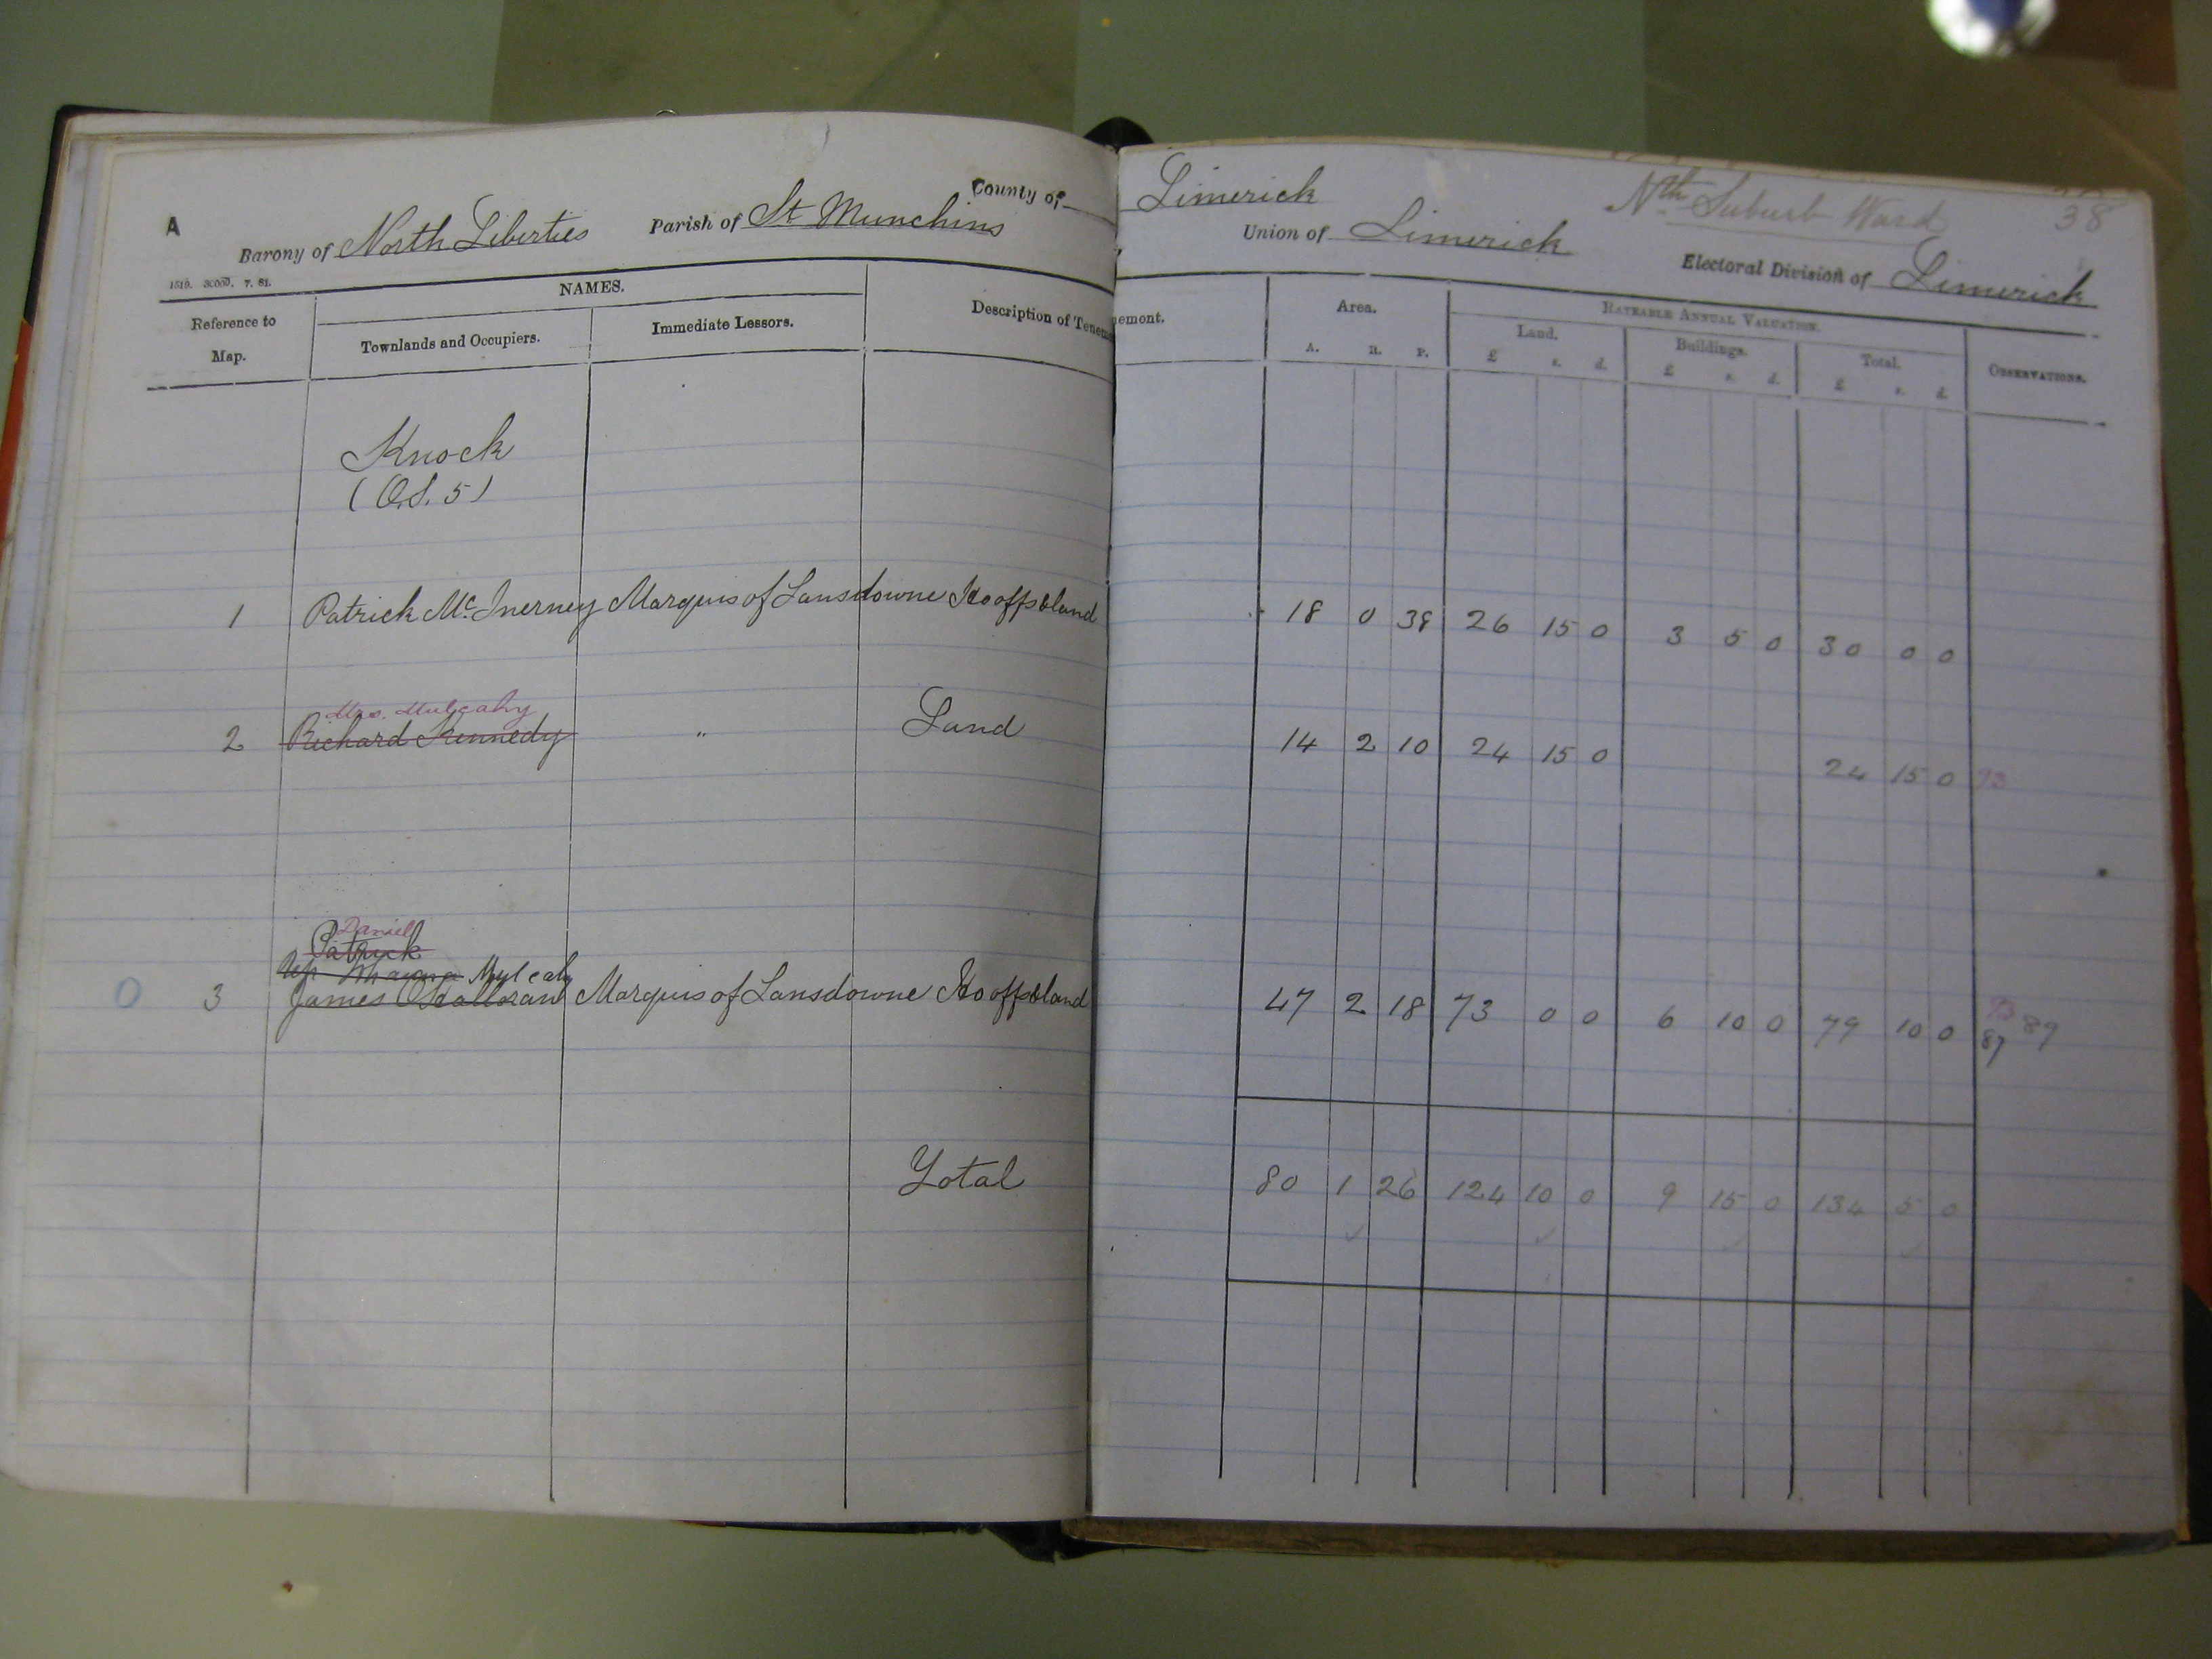 A
County of Limerick
Nth Suburb Ward
38
Barony of North Liberties Parish of St Munchins
Union of Limerick
Electoral Division of Limerick
Reference to Map.
NAMES.
Townlands and Occupiers.
Immediate Lessors.
Description of Tenement.
Area.
A. R. P.
RATEABLE ANNUAL VALUATION.
Land.
£ s. d.
Buildings.
£ s. d.
Total.
£ s. d.
OBSERVATIONS.
Knock
(O.S. 5)
1 Patrick McInerney Marquis of Lansdowne Ho offs & land 18 0 38 26 15 0 3 5 0 30 0 0
Mrs. Mulcahy
2 Richard Kennedy " Land 14 2 10 24 15 0 24 15 0 93
Daniel
Patrick
Mulcahy
0 3 James O'Halloran Marquis of Lansdowne Ho offs & land 47 2 18 73 0 0 6 10 0 79 10 0 93 89
87
Total 80 1 26 124 10 0 9 15 0 134 5 0